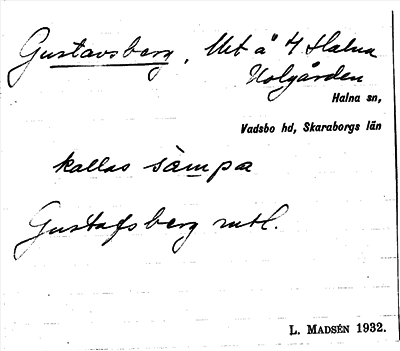 Gustavsberg, Utt å" 4 Halna
Holgården
Halna sn,
Vadsbo hd, Skaraborgs län
kallas sàmpa
Gustafsberg mtl.
L. MADSÉN 1932.